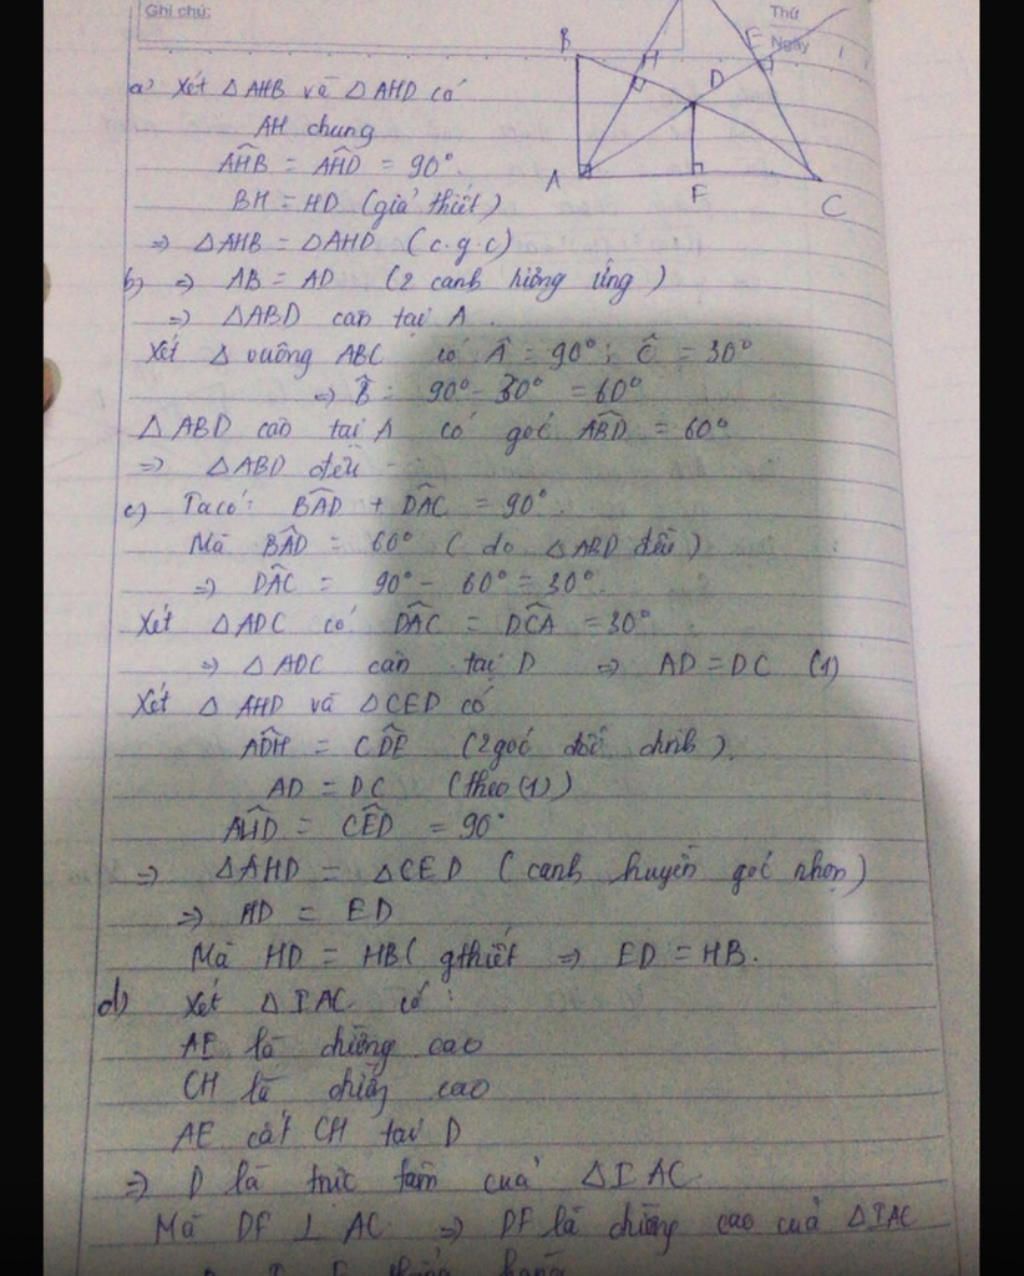 Ghi chú:
Thứ
Ngày
B
H
E
D
A
F
C
a) Xét △AHB và △AHD có
AH chung
AHB = AHD = 90°
BH = HD (giả thiết)
=> △AHB = △AHD (c.g.c)
b) => AB = AD (2 cạnh tương ứng)
=> △ABD cân tại A.
Xét △ vuông ABC có Â = 90°; Ĉ = 30°
=> B̂ = 90° - 30° = 60°
△ABD cân tại A có góc ABD = 60°
=> △ABD đều
c) Ta có: BAD + DAC = 90°.
Mà BAD = 60° (do △ABD đều)
=> DAC = 90° - 60° = 30°.
Xét △ADC có DAC = DCA = 30°
=> △ADC cân tại D => AD = DC (1)
Xét △AHD và △CED có
ADH = CDE (2 góc đối đỉnh).
AD = DC (theo (1))
AHD = CED = 90°
=> △AHD = △CED (cạnh huyền góc nhọn)
=> HD = ED
Mà HD = HB( gthiết => ED = HB.
d) Xét △IAC có:
AE là đường cao
CH là đường cao
AE cắt CH tại D
=> D là trực tâm của △IAC
Mà DF ⊥ AC => DF là đường cao của △IAC
I, F thẳng hàng